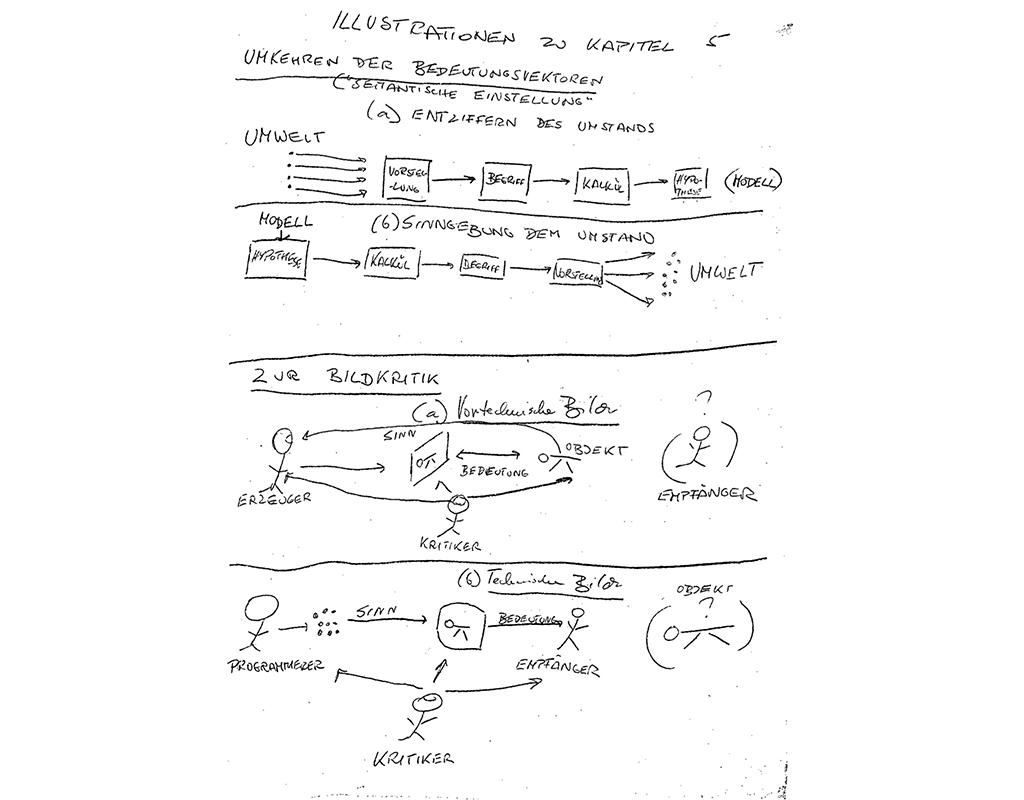 ILLUSTRATIONEN ZU KAPITEL 5
UMKEHREN DER BEDEUTUNGSVEKTOREN
("SEMANTISCHE EINSTELLUNG"
(a) ENTZIFFERN DES UMSTANDS
UMWELT
VORSTEL
-LUNG
BEGRIFF
KALKÜL
HYPO-
THESE
(MODELL)
MODELL
(b) SINNGEBUNG DEM UMSTAND
HYPOTHESE
KALKÜL
BEGRIFF
VORSTELLUNG
UMWELT
ZUR BILDKRITIK
(a) Vortechnische Bilder
?
SINN
OBJEKT
BEDEUTUNG
ERZEUGER
EMPFÄNGER
KRITIKER
(b) Technische Bilder
OBJEKT
?
SINN
BEDEUTUNG
PROGRAMMIERER
EMPFÄNGER
KRITIKER